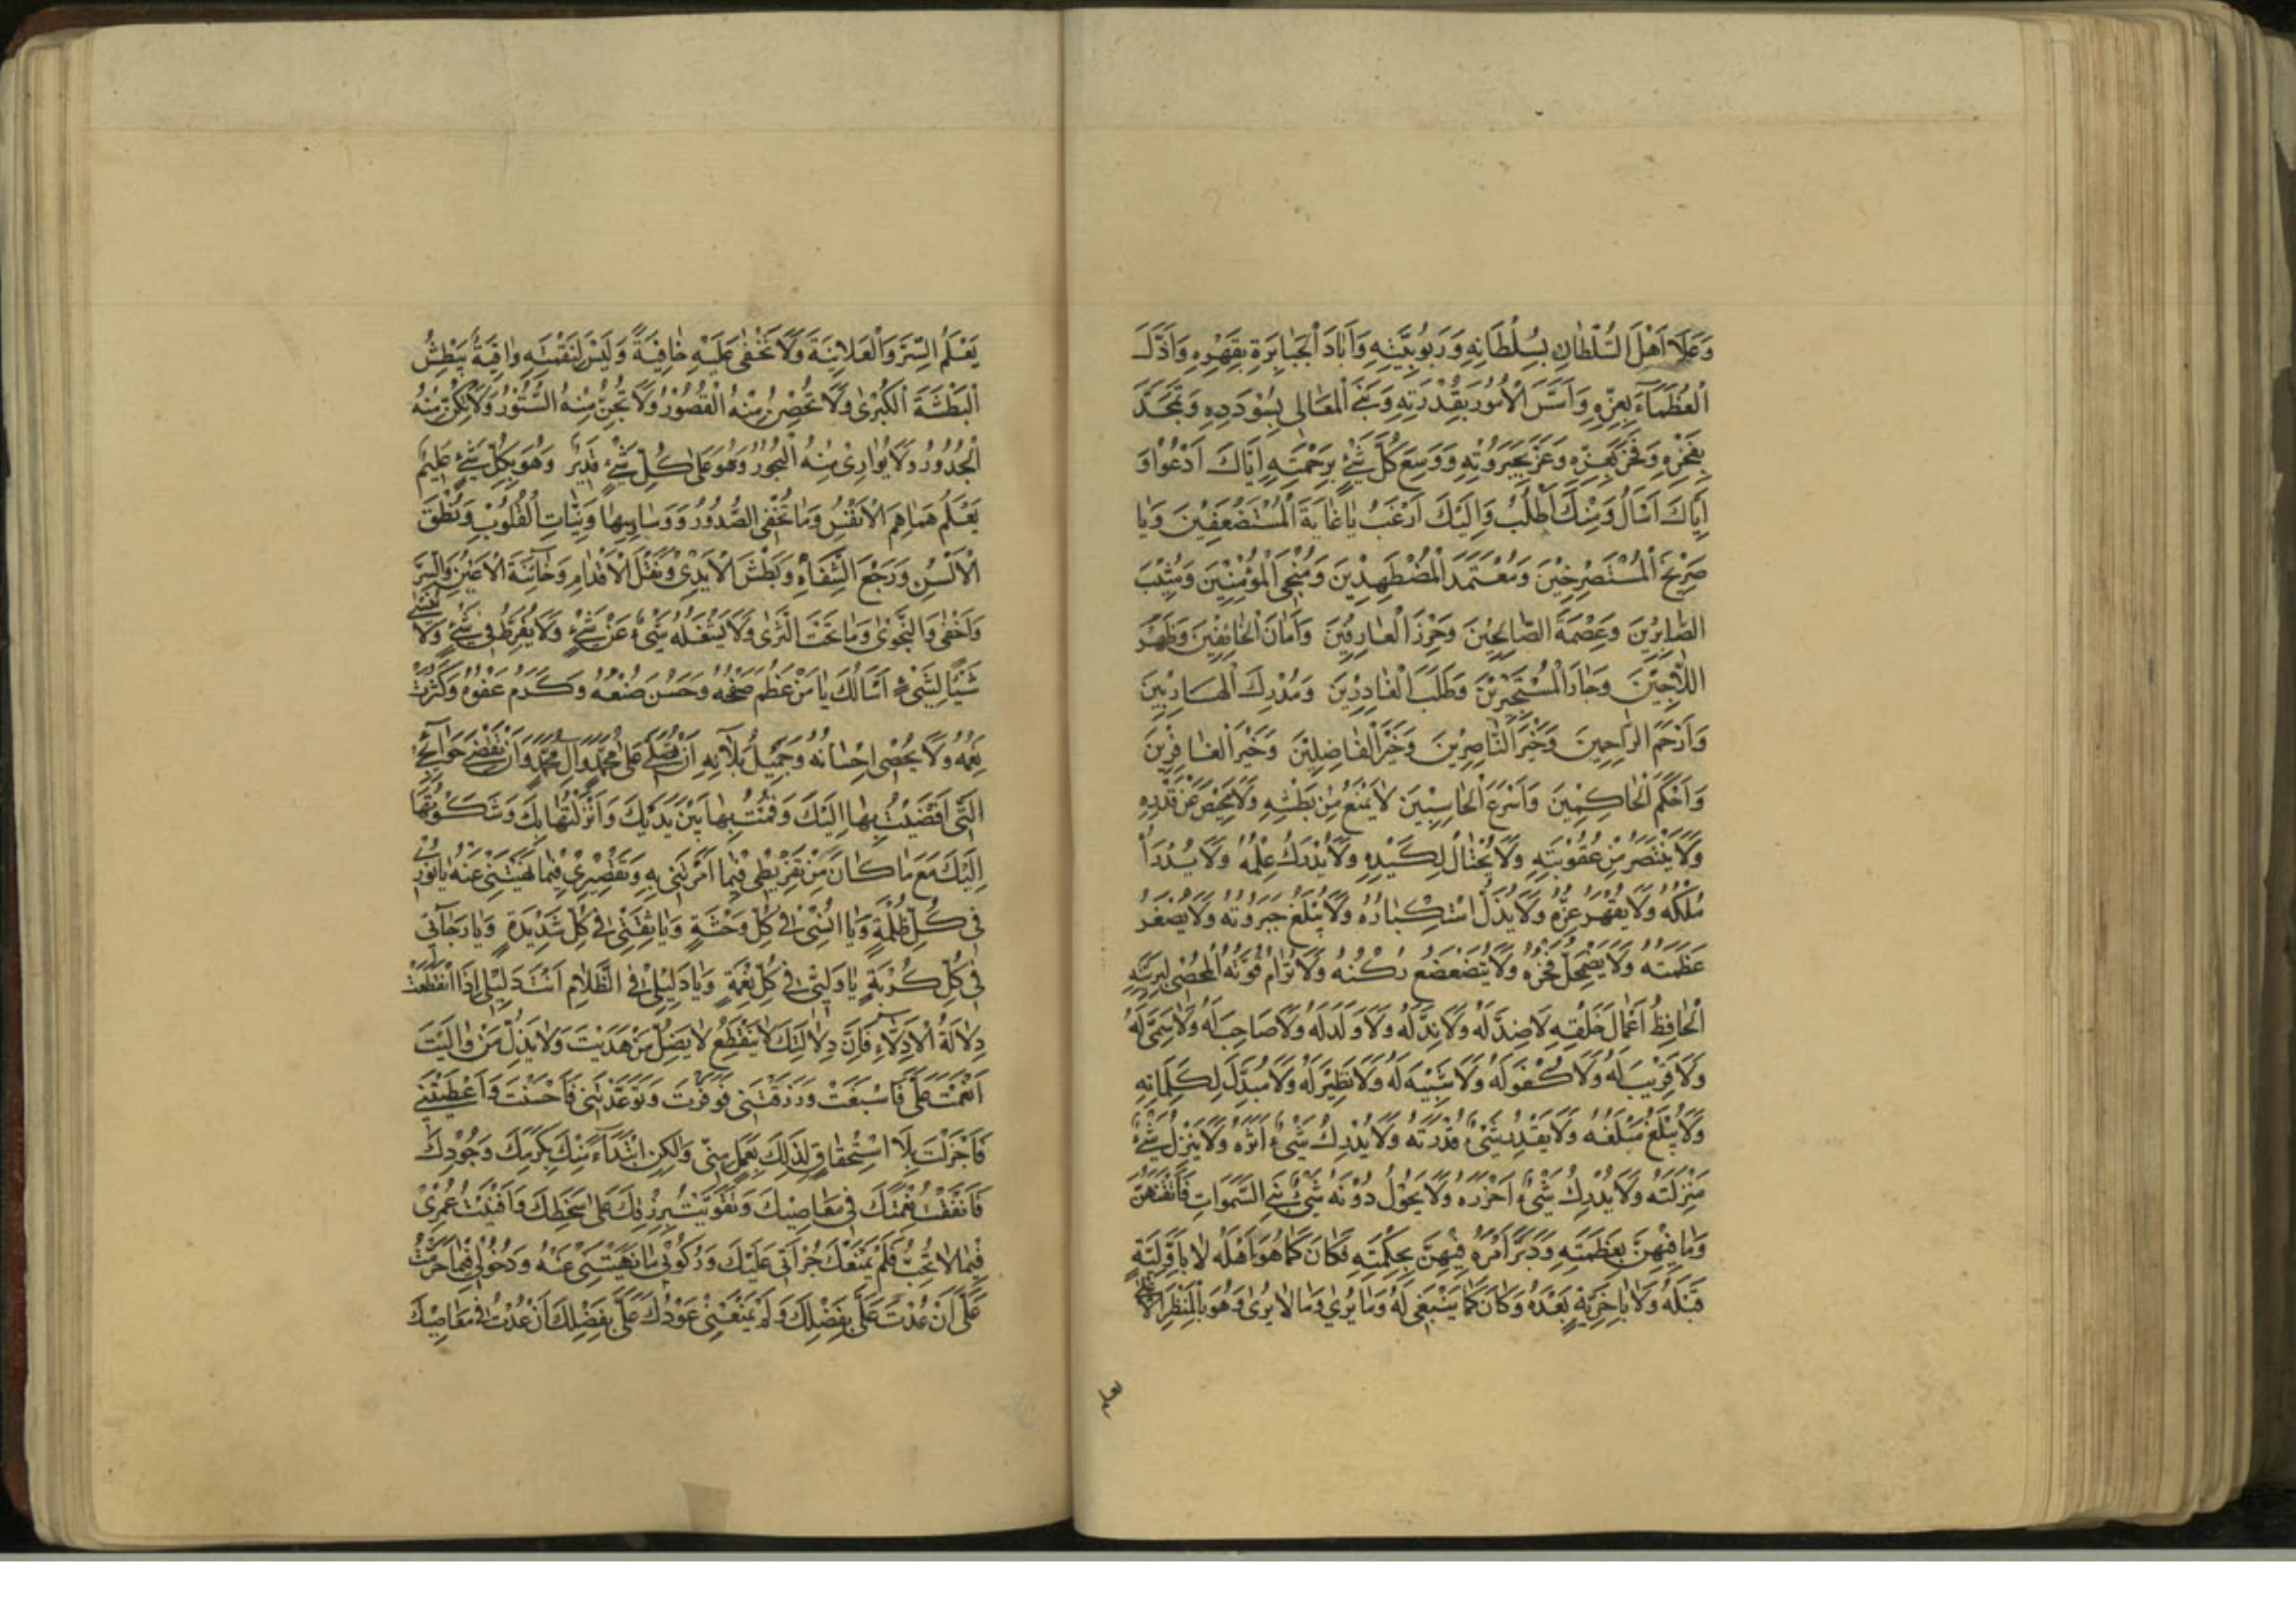 وَعَلَا اَهْلَ السُّلْطَانِ بِسُلْطَانِهِ وَرَبُوبِيَّتِهِ وَاَبَادَ الْجَبَابِرَةِ بِقَهْرِهِ وَاَذَلَّ
الْعُظَمَآءَ بِعِزِّهِ وَاَسَّسَ الْاُمُورَ بِقُدْرَتِهِ وَبَنَى الْمَعَالِى بِسُوْدَدِهِ وَتَمَجَّدَ
بِفَخْرِهِ وَفَخَرَ بِعِزِّهِ وَعَزَّ بِجَبَرُوتِهِ وَوَسِعَ كُلَّ شَىْءٍ بِرَحْمَتِهِ اِيَّاكَ اَدْعُوا وَ
اِيَّاكَ اَسْاَلُ وَمِنْكَ اَطْلُبُ وَاِلَيْكَ اَرْغَبُ يَا غَايَةَ الْمُسْتَضْعَفِيْنَ وَيَا
صَرِيْخَ الْمُسْتَصْرِخِيْنَ وَمُعْتَمَدَ الْمُضْطَهِدِيْنَ وَمُنْجِىَ الْمُؤْمِنِيْنَ وَمُثِيْبَ
الصَّابِرِيْنَ وَعِصْمَةَ الصَّالِحِيْنَ وَحِرْزَ الْعَارِفِيْنَ وَاَمَانَ الْخَائِفِيْنَ وَظَهْرَ
اللَّاجِيْنَ وَجَارَ الْمُسْتَجِيْرِيْنَ وَطَلَبَ الْغَادِرِيْنَ وَمُدْرِكَ الْهَارِبِيْنَ
وَاَرْحَمَ الرَّاحِمِيْنَ وَخَيْرَ النَّاصِرِيْنَ وَخَيْرَ الْفَاصِلِيْنَ وَخَيْرَ الْغَافِرِيْنَ
وَاَحْكَمَ الْحَاكِمِيْنَ وَاَسْرَعَ الْحَاسِبِيْنَ لَا يَمْنَعُ مِنْ بَطْشِهِ وَلَا يَمْحِصُ عَنْ قَدَرِهِ
وَلَا يَنْتَصِرُ مِنْ عُقُوبَتِهِ وَلَا يُحْتَالُ لِكَيْدِهِ وَلَا يُدْرَكُ عِلْمُهُ وَلَا يُدْرَأُ
مُلْكُهُ وَلَا يُقْهَرُ عِزُّهُ وَلَا يُذَلُّ اسْتِكْبَارُهُ وَلَا يُبْلَغُ جَبَرُوتُهُ وَلَا يَصْغَرُ
عَظَمَتُهُ وَلَا يَضْمَحِلُّ فَخْرُهُ وَلَا يَتَضَعْضَعُ رُكْنُهُ وَلَا تُرَامُ قُوَّتُهُ الْمُحْصِى لِبَرِيَّتِهِ
الْحَافِظُ اَعْمَالَ خَلْقِهِ لَا ضِدَّ لَهُ وَلَا نِدَّ لَهُ وَلَا وَلَدَ لَهُ وَلَا صَاحِبَةَ لَهُ وَلَا سَمِىَّ لَهُ
وَلَا قَرِيْبَ لَهُ وَلَا كُفْوَ لَهُ وَلَا شَبِيْهَ لَهُ وَلَا نَظِيْرَ لَهُ وَلَا مُبَدِّلَ لِكَلِمَاتِهِ
وَلَا يُبْلَغُ مَبْلَغُهُ وَلَا يَقْدِرُ شَىْءٌ قُدْرَتَهُ وَلَا يُدْرِكُ شَىْءٌ اَثَرَهُ وَلَا يَنْزِلُ شَىْءٌ
مَنْزِلَتَهُ وَلَا يُدْرِكُ شَىْءٌ اَحْرَزَهُ وَلَا يَحُوْلُ دُوْنَهُ شَىْءٌ بَنَى السَّمَوَاتِ فَاَتْقَنَهُنَّ
وَمَا فِيْهِنَّ بِعَظَمَتِهِ وَدَبَّرَ اَمْرَهُ فِيْهِنَّ بِحِكْمَتِهِ فَكَانَ كَمَا هُوَ اَهْلُهُ لَا بِاَوَّلِيَّةٍ
قَبْلَهُ وَلَا بِاٰخِرِيَّةٍ بَعْدَهُ وَكَانَ كَمَا يَنْبَغِى لَهُ وَمَا يُرٰى وَمَا لَا يُرٰى وَهُوَ بِالْمَنْظَرِ الْاَعْلٰى
يعلم
يَعْلَمُ السِّرَّ وَالْعَلَانِيَةَ وَلَا تَخْفٰى عَلَيْهِ خَافِيَةً وَلَيْسَ لِنَقْمَتِهِ وَاقِيَةٌ يَبْطِشُ
الْبَطْشَةَ الْكُبْرٰى وَلَا تُحْصِنُ مِنْهُ الْقُصُوْرُ وَلَا تُجِنُّ مِنْهُ السُّتُوْرُ وَلَا تَكِنُّ مِنْهُ
الْجُدُوْرُ وَلَا يُوَارِىْ مِنْهُ الْبُحُوْرُ وَهُوَ عَلٰى كُلِّ شَىْءٍ قَدِيْرٌ وَهُوَ بِكُلِّ شَىْءٍ عَلِيْمٌ
يَعْلَمُ هَمَاهِمَ الْاَنْفُسِ وَمَا تُخْفِى الصُّدُوْرُ وَوَسَاوِسِهَا وَنِيَّاتِ الْقُلُوْبِ وَنُطْقَ
الْاَلْسُنِ وَرَجْعَ الشِّفَاهِ وَبَطْشَ الْاَيْدِىْ وَنَقْلَ الْاَقْدَامِ وَخَآئِنَةَ الْاَعْيُنِ وَالسِّرَّ
وَاَخْفٰى وَالنَّجْوٰى وَمَا تَحْتَ الثَّرٰى وَلَا يَشْغَلُهُ شَىْءٌ عَنْ شَىْءٍ وَلَا يُفَرِّطُ فِىْ شَىْءٍ وَلَا يَنْسٰى
شَيْئًا لِشَىْءٍ اَسْاَلُكَ يَا مَنْ عَظُمَ صَفْحُهُ وَحَسُنَ صُنْعُهُ وَكَرُمَ عَفْوُهُ وَكَثُرَتْ
نِعَمُهُ وَلَا يُحْصٰى اِحْسَانُهُ وَجَمِيْلُ بَلَآئِهِ اَنْ تُصَلِّىَ عَلٰى مُحَمَّدٍ وَاٰلِ مُحَمَّدٍ وَاَنْ تَقْضِىَ حَوَآئِجِىْ
الَّتِىْ اَفْضَيْتُ بِهَا اِلَيْكَ وَقُمْتُ بِهَا بَيْنَ يَدَيْكَ وَاَنْزَلْتُهَا بِكَ وَشَكَوْتُهَا
اِلَيْكَ مَعَ مَا كَانَ مِنْ تَفْرِيْطِى فِيْمَا اَمَرْتَنِى بِهِ وَتَقْصِيْرِىْ فِيْمَا نَهَيْتَنِىْ عَنْهُ يَا نُوْرِىْ
فِى كُلِّ ظُلْمَةٍ وَيَا اُنْسِىْ فِىْ كُلِّ وَحْشَةٍ وَيَا ثِقَتِىْ فِىْ كُلِّ شَدِيْدَةٍ وَيَا رَجَآئِى
فِى كُلِّ كُرْبَةٍ يَا وَلِيِّىْ فِى كُلِّ نِعْمَةٍ وَيَا دَلِيْلِىْ فِى الظَّلَامِ اَنْتَ دَلِيْلِى اِذَا انْقَطَعَتْ
دِلَالَةُ الْاَدِلَّاءِ فَاِنَّ دِلَالَتَكَ لَا يَنْقَطِعُ لَا يَضِلُّ مَنْ هَدَيْتَ وَلَا يَذِلُّ مَنْ وَالَيْتَ
اَنْعَمْتَ عَلَىَّ فَاَسْبَغْتَ وَرَزَقْتَنِى فَوَفَّرْتَ وَوَعَدْتَنِى فَاَحْسَنْتَ وَاَعْطَيْتَنِىْ
فَاَجْزَلْتَ بِلَا اسْتِحْقَاقٍ لِذٰلِكَ بِعَمَلٍ مِنِّى وَلٰكِنِ ابْتِدَآءً مِنْكَ بِكَرَمِكَ وَجُوْدِكَ
فَاَنْفَقْتُ نِعْمَتَكَ فِى مَعَاصِيْكَ وَتَقَوَّيْتُ بِرِزْقِكَ عَلٰى سَخَطِكَ وَاَفْنَيْتُ عُمْرِىْ
فِيْمَا لَا تُحِبُّ فَلَمْ يَمْنَعْكَ جُرْاَتِى عَلَيْكَ وَرُكُوْبِى مَا نَهَيْتَنِىْ عَنْهُ وَدُخُوْلِى فِيْمَا حَرَّمْتَ
عَلَىَّ اَنْ عُدْتَ عَلَىَّ بِفَضْلِكَ وَلَمْ يَمْنَعْنِىْ عَوْدُكَ عَلَىَّ بِفَضْلِكَ اَنْ عُدْتُ فِىْ مَعَاصِيْكَ